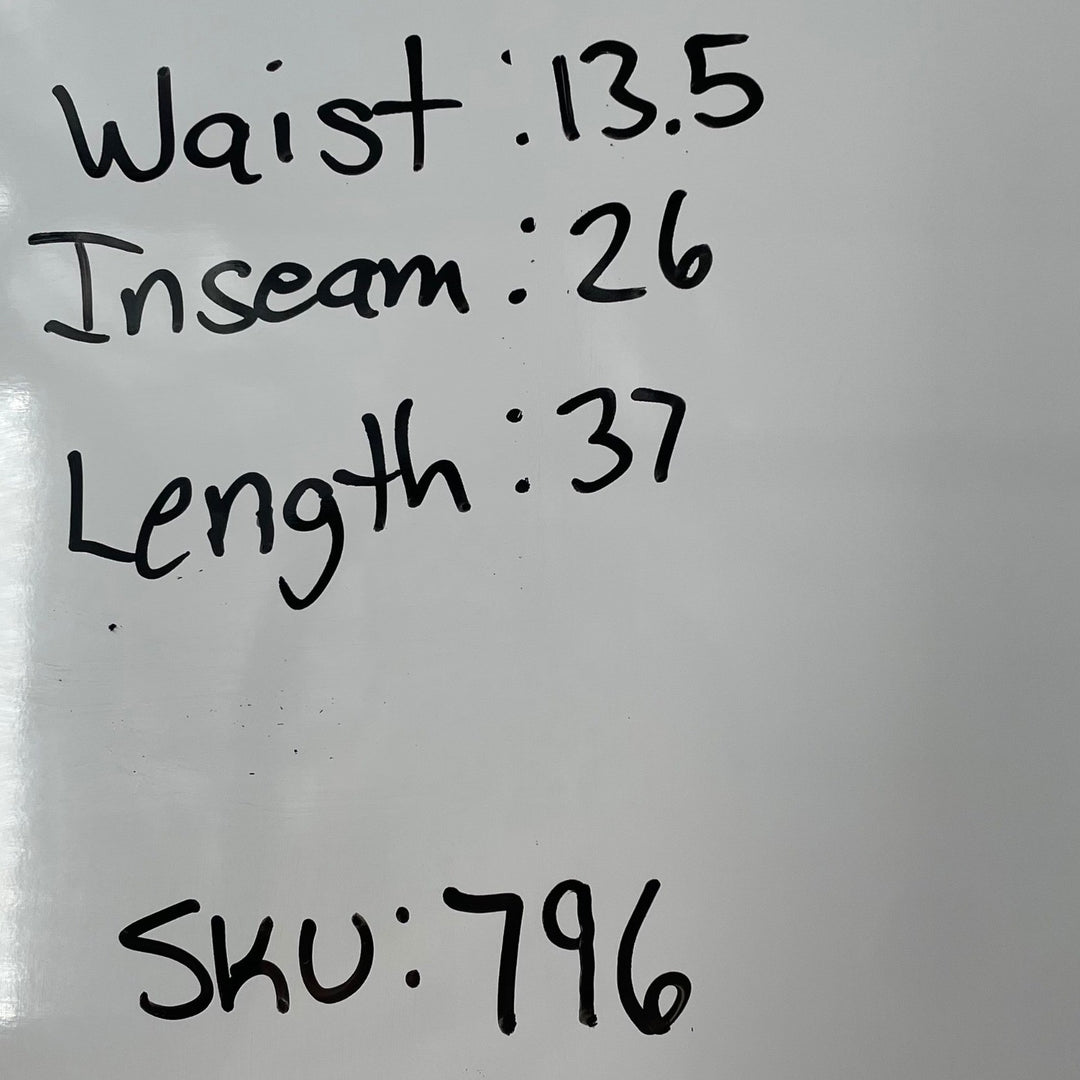 Waist : 13.5
Inseam : 26
Length : 37
SKU: 796